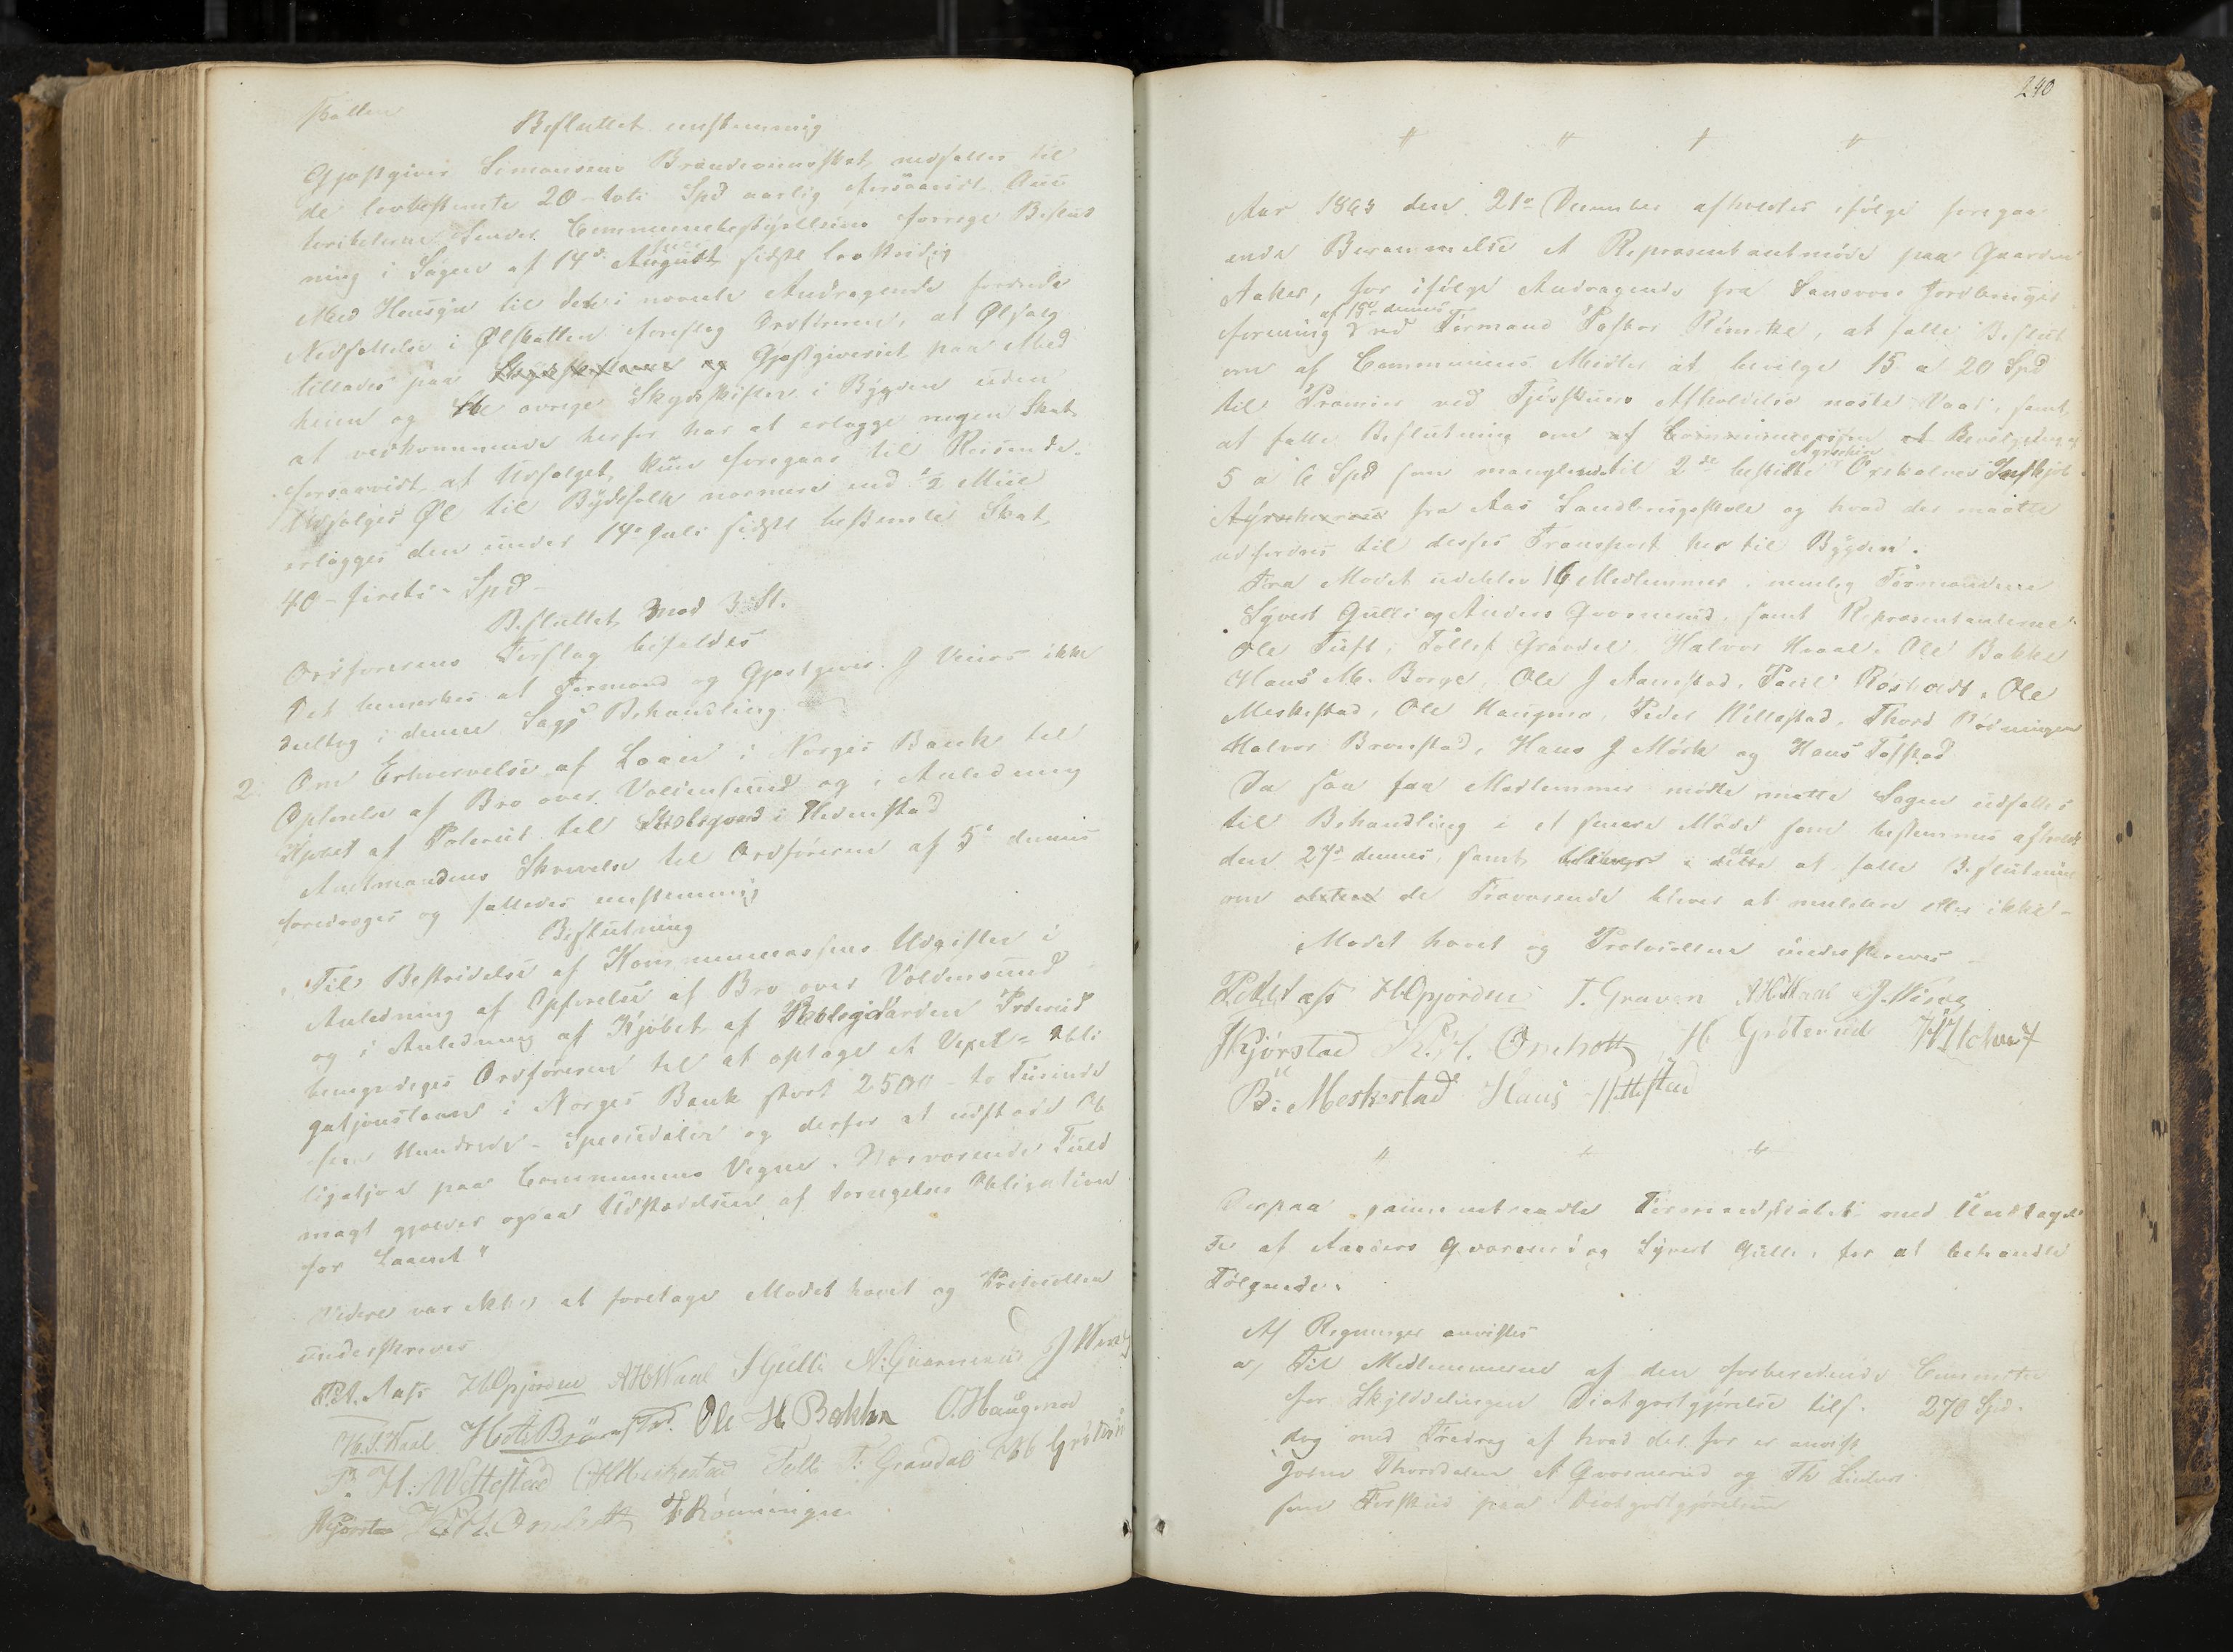 skatten
Besluttet enstemmig
Gjæstgiver Simonsens Brændevinsskat nedsættes til
de lovbestemte 20 - tyve Spd aarlig
Communebestyrelsens forrige Beslut
ning i Sagen af 14de August sidste lovstridig
Med Hensyn til det i nævnte Andragende
Nedsættelse i Ølskatten foreslog Ordføreren, at Ølsalg
tillades paa og Gjæstgiveriet paa Med
heim og de øvrige Skydsskifter i Bygden uden
at vedkommende herfor har at erlægge nogen Skat
forsaavidt at Udsalget kun foregaar til Reisende.
Udsælges Øl til Bydefolk nærmere end ½ Miil
erlægges den under 14de Juli sidste bestemte Skat
40 - fireti - Spd -
Besluttet mod 3 St.
Ordførerens Forslag bifaldes
Det bemærkes at Formand og Gjæstgiver J Wiirs ikke
deeltog i denne Sags Behandling.
2. Om Erhvervelse af Laan i Norges Bank til
Opførelse af Bro over Voldensund og i Anledning
Kjøbet af Polerud til Skolegaard i Hedenstad
Amtmandens Skrivelse til Ordføreren af 5te dennes
foredroges og fattedes enstemmig
Beslutning
"Til Bestridelse af Kommunecassens Udgifter i
Anledning af Opførelse af Bro over Voldensund
og i Anledning af Kjøbet af Skolegaarden Polerud
bemyndiges Ordføreren til at optage et Vexel = Obli
gatjonslaan i Norges Bank stort 2500 - to Tusinde
fem Hundrede - Speciedaler og derfor at udstede Ob
ligatjon paa Communens Vegne. Nærværende Fuld
magt gjælder ogsaa Udstædelsen af fornyelses Obligation
for Laanet"
Videre var ikke at foretage Mødet hævet og Protocollen
underskreves
P.A. Aass HOpjorden AHWaal SGulli A:Gvarnerud J Wiirs
H.T.Waal Ole H Bakken O.Haugmoe
P. H. Wittestad Tollef T: Grøndal
Kjørstad TRönningen
240
Aar 1863 den 21de December afholdtes ifølge foregaa
ende Berammelse et Repræsentantmøde paa Gaarden
Aaker, for ifølge Andragende fra Sandsvær Jordbrugs
forening af 19de dennes ved Formand Pastor Rincke, at fatte Beslut
om af Communens Midler at bevilge 15 a 20 Spd
til Præmier ved Fjøsskuers Afholdelse næste Vaar, samt
at fatte Beslutning om af Communecassen at Bevilgning af
5 a 6 Spd som mangler til 2de bestilte Ayrschire Oxekalver
Ayrscherne fra Aas Landbrugsskole og hvad der maatte
udfordres til derses Transport her til Bygden.
Fra Mødet udeblev 16 Medlemmer, nemlig Formændene
Syvert Gulli og Anders Gvarnerud, samt Repræsentanterne
Ole Tuft, Tollef Grøndal, Halvor Hvaal, Ole Bakke
Hans M. Borge, Ole J Aamstad, Paul Røsholdt, Ole
Meskestad, Ole Haugmo, Peder Wittestad, Thord Rønningen
Halvor Brønstad, Hans J Mörk og Hans Tofstad
Da saa faa Medlemmer mødte maatte Sagen udsættes
til Behandling i et senere Møde som bestemmes afholdt
den 27de dennes, samt bliver i dette da at fatte Beslutning
om de Fraværende bliver at mulctere eller ikke -
Mødet hævet og Protocollen underskreves -
P.A. Aass HOpjorden T. Graven AHWaal J. Wiirs
JKjörstad H Gröterud
B: Meskestad Hans
Derpaa sammentraadte Formandskabet med Undtagel
se af Anders Gvarnerud og Syvert Gulli, for at behandle
Følgende:
Af Regninger anvistes
a, Til Medlemmerne af den forberedende Commission
for Skylddelingen Diætgodtgjørelse tils. 270 Spd.
dog med Fradrag af hvad der før er anvist
Johan Thorsdalen A Gvarnerud og Th
som Forskud paa Diætgodtgjørelsen